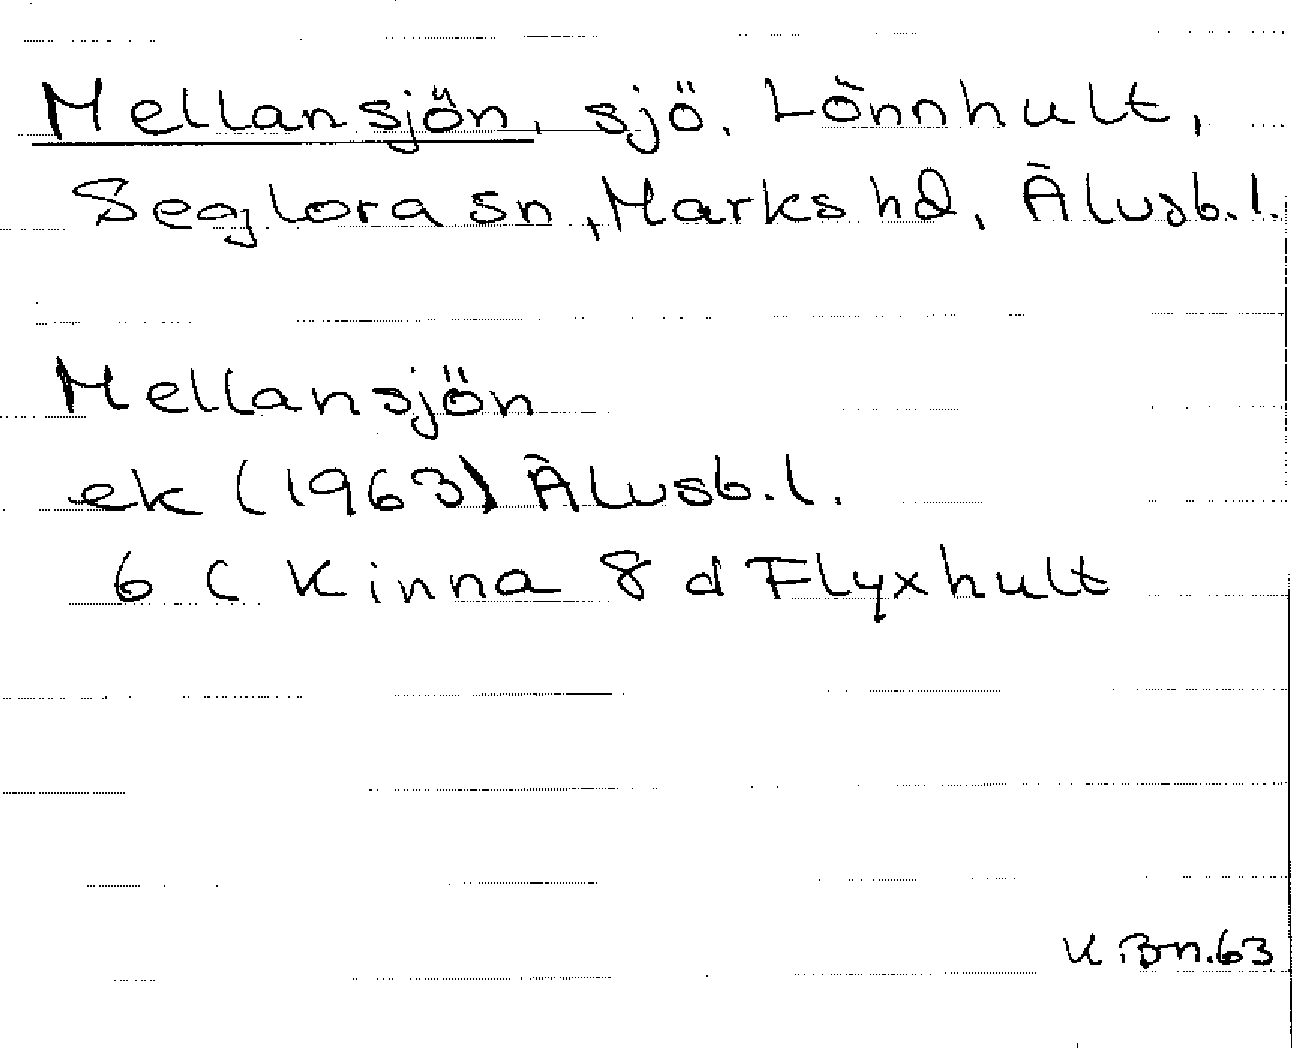 Mellansjön, sjö. Lönnhult,
Seglora sn, Marks hd, Älvsb.l.
Mellansjön
ek (1963) Älvsb.l.
6 C Kinna 8 d Flyxhult
K Bn.63